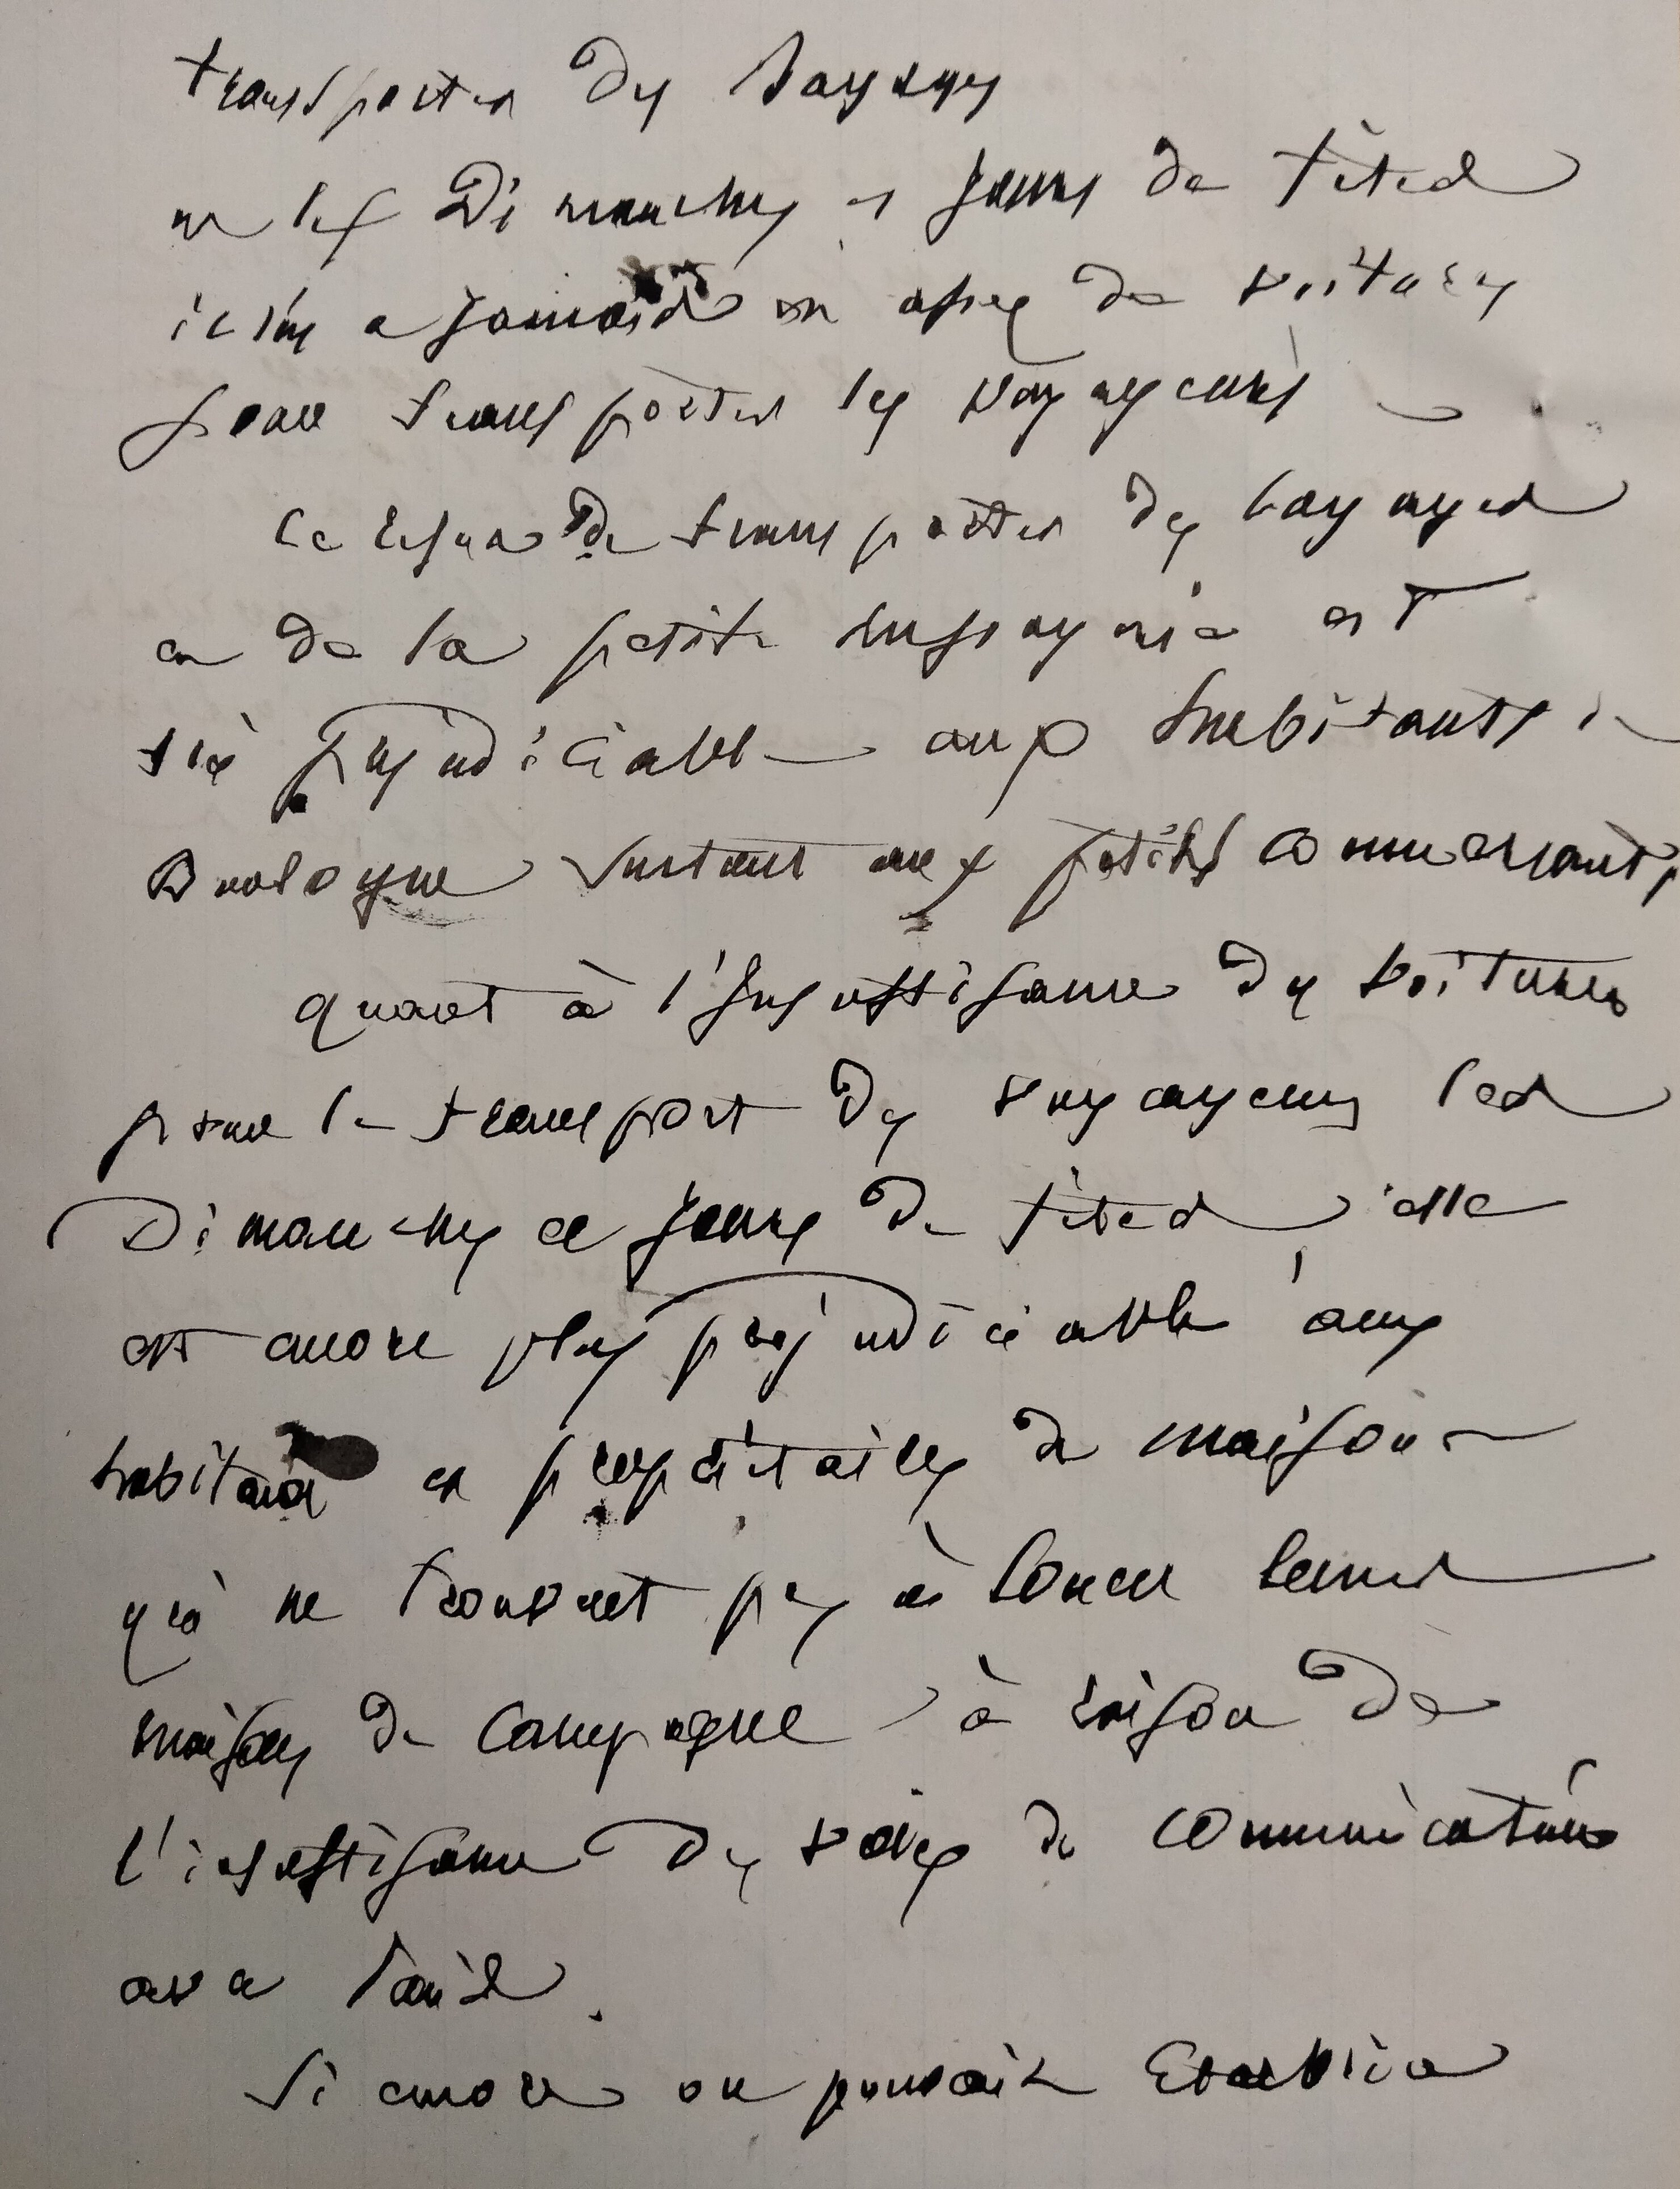 transporter des bagages
et les Dimanches et jours de fêtes
il n'y a jamais assez de voitures
pour transporter les voyageurs
Le refus de transporter des bagages
et de la petite messagerie est
très préjudiciable aux habitants de
Boulogne surtout aux petits commerçants,
quant à l'insuffisance des voitures
pour le transport des voyageurs les
Dimanches et jours de fêtes elle
est encore plus préjudiciable aux
habitants et propriétaires de maisons
qui ne trouvent pas à louer leurs
maisons de Campagne à raison de
l'insuffisance des voies de communications
avec Paris.
Si encore on pouvait Etablir